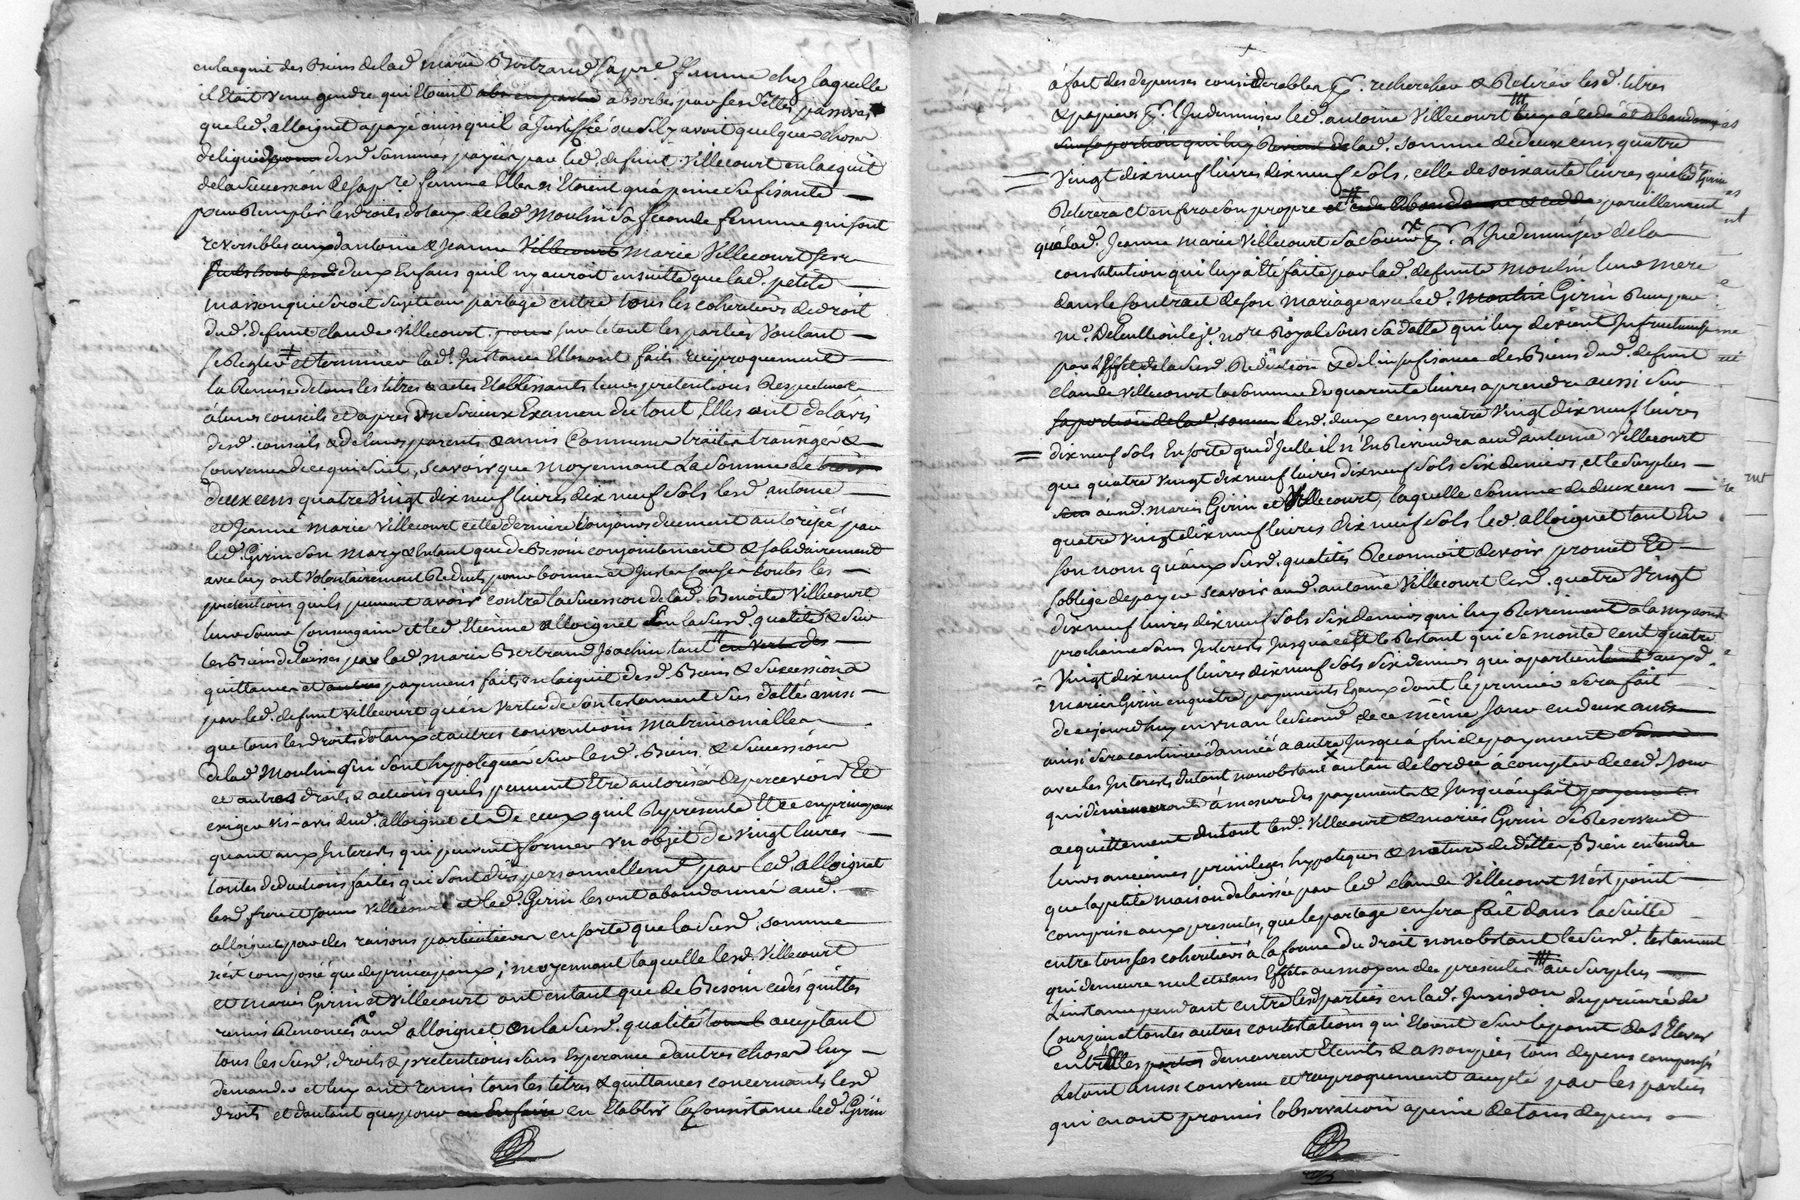 en lacquit des Biens de lad. marie Bertrand sa pre. femme chez laquelle
il Etait venu gendre qui Etoient absorbés par ses dettes passives
que led. alloignet a payé ainsi quil à Justiffié ou s'il y avoit quelque chose
de liquide desd. sommes payées par led. defunt Villecourt en lacquit
de la succession de sa pre. femme Elles n'Etoient qu'à peine sufisante
pour Remplir les droits dotaux de lad. Moulin sa seconde femme qui sont
reversibles auxd. antoine & Jeanne Villecourt Marie Villecourt ses
deux Enfans quil n'y auroit ensuitte que lad. petite
maison qui seroit sujette au partage entre tous les cohéritiers de droit
dud. defunt claude Villecourt, sur letout les parties Voulant
se Regler et terminer lad. Instance Elles ont fait reciproquement
la Remise de tous les titres & actes Etablissants leurs pretentions Respectives
à leurs conseils et après Une serieux Examen du tout Elles ont de lavis
desd. conseils & de leurs parents & amis Communs traité transigé &
convenu de ce qui suit, scavoir que moyennant La somme de trois
deux cens quatre Vingt dix neuf livres dix neuf sols lesd. antoine
et Jeanne Marie Villecourt cette derniere toujours duement autorisée par
led. Girin son mary & Entant que de Besoin conjointement & solidairement
avec luy ont Volontairement Reduits pour bonnes et Justes causes toutes les
pretentions quils peuvent avoir contre la succession de lad. Benoite Villecourt
leur soeur Consanguine et led. Etienne alloignet En la susd. qualité & sur
les Biens delaissés par lad. marie Bertrand Joachin tant en vertu des
quittances et autres payemens faits en lacquit desd. Biens & succession
par led. defunt Villecourt qu'en Vertu de son testament sus datté ainsi
que tous les droits dotaux et autres conventions Matrimonialles
de lad. Moulin qui sont hypotequés sur lesd. Biens & succession
et autres droits & actions quils peuvent Etre autorisés de percevoir Et
exiger vis-avis dud. alloignet et de ceux quil Represente Et ce en principaux
quant aux Interets qui peuvent former un objet de Vingt livres
toutes deductions faites qui sont dûs personnellemt. par led. alloignet
lesd. frere et soeur Villecourt et led. Girin les ont abandonnés aud.
alloignet pour des raisons particulieres en sorte que la susd. somme
n'est composé que de principaux; moyennant laquelle lesd. Villecourt
et mariés Girin et Villecourt ont en tant que de Besoin cedés quittés
remis & Renoncés aud. alloignet en la susd. qualité acceptant
tous les susd. droits & pretentions sans Esperance d'autres choses luy
demander et luy ont remis tous les titres & quittances concernants lesd.
droits et dautant que pour en Etablir la Consistance led. Girin
à fait des depenses considerables pr. rechercher & Retirer lesd. titres
& papiers pr. l'Indemniser led. antoine Villecourt luy à cédé et abandonné
de lad. somme de deux cens quatre
Vingt dix neuf livres dix neuf sols, celle de soixante livres que led. Girin
Retirera et en fera son propre et cede pareillement
qu'à lad. Jeanne marie Villecourt sa soeur pr. l'Indemniser de la
constitution qui luy à Eté faite par lad. defunte Moulin leur mere
dans le Contract de son mariage avec led. Moulin Girin Reçu par
Me. Delenllion lejé. nore. Royal sous sa datte qui luy devient Infructueuse
par l'Effet de la susd. Reduction & de l'insufisance des Biens dud. defunt
claude Villecourt la somme de quarente livres a prendre aussi sur
sa portion de lad. somme desd. deux cens quatre Vingt dix neuf livres
dix neuf sols En sorte que d'Icelle il n'En Reviendra aud. antoine Villecourt
que quatre Vingt dix neuf livres dix neuf sols six deniers, et le Surplus
auxd. mariés Girin et Villecourt, laquelle somme de deux cens
quatre Vingt dix neuf livres dix neuf sols led. alloignet tant En
son nom qu'aux susd. qualités Reconnoit devoir promet Et
soblige de payer scavoir aud. antoine Villecourt lesd. quatre Vingt
dix neuf livres dix neuf sols six deniers qui luy Reviennent a la my aout
prochaine sans Interets Jusqu'à ce Et le Restant qui se monte cent quatre
Vingt dix neuf livres dix neuf sols six deniers qui apartient auxd.
mariés Girin en quatre payements Egaux dont le premier sera fait
de ce jourdhuy en un an le second de ce même Jour en deux ans
ainsi sera continué d'année a autre Jusqu'à fin de payement
avec les Interets du tout nonobstant au tau de l'ordce. à compter de ced. Jour
qui diminueront à mesure des payements & Jusqu'au fait
acquittement du tout lesd. Villecourt & mariés Girin se Reservent
leurs anciennes privileges hypoteques & nature de dette, Bien entendu
que la petite maison delaissée par led. claude Villecourt n'est point
comprise aux presentes, que le partage en sera fait dans la suitte
entre tous ses cohéritiers à la forme du droit nonobstant le susd. testament
qui demeure nul et sans Effet au moyen des presentes au surplus
L'instance pendant entre lesd. parties en lad. Jurisdon. du prieuré de
Courzieu et toutes autres contestations qui Etoient sur le point de s'Elever
entr'elles demeurent Eteints & assoupies tous depens compensés
le tout ainsi convenu et reciproquement accepté par les parties
qui en ont promis lobservation a peine de tous depens